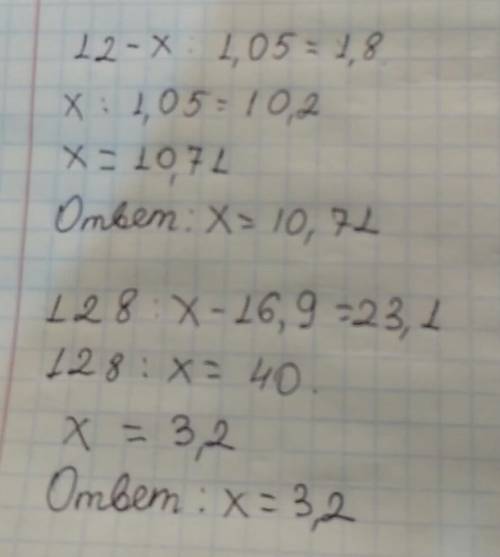 12 - x : 1,05 = 1,8
x : 1,05 = 10,2
x = 10,71
Ответ: x = 10,71
128 : x - 16,9 = 23,1
128 : x = 40.
x = 3,2
Ответ: x = 3,2